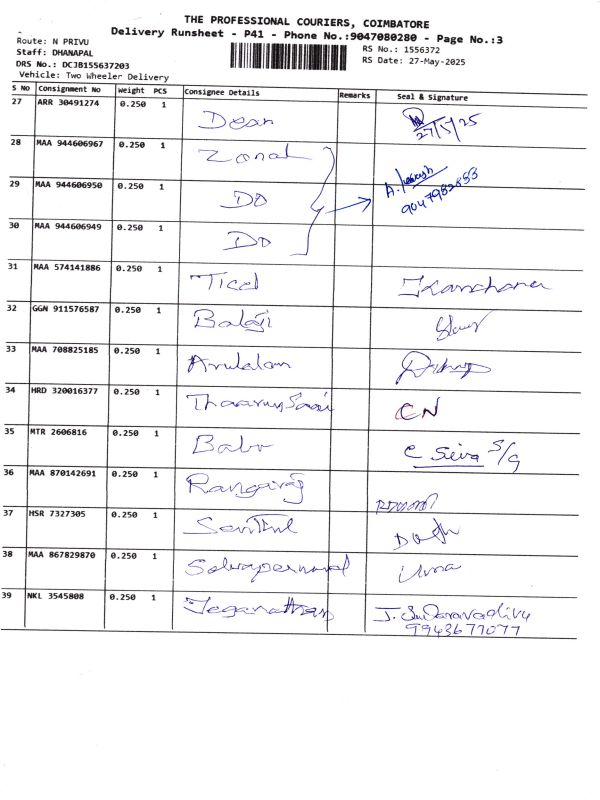 THE PROFESSIONAL COURIERS, COIMBATORE
Delivery Runsheet - P41 - Phone No.:9047080280 - Page No.:3
Route: N PRIVU
RS No.: 1556372
Staff: DHANAPAL
RS Date: 27-May-2025
DRS No.: DCJB155637203
Vehicle: Two Wheeler Delivery
S No Consignment No Weight PCS Consignee Details Remarks Seal & Signature
27 ARR 30491274 0.250 1 Dean 27/5/25
28 MAA 944606967 0.250 1 Zonal
29 MAA 944606950 0.250 1 DO 9047982858
30 MAA 944606949 0.250 1 DO
31 MAA 574141886 0.250 1 Ticel Kanchana
32 GGN 911576587 0.250 1 Balaji
33 MAA 708825185 0.250 1 Arulalan
34 HRD 320016377 0.250 1 CN
35 MTR 2606816 0.250 1 Babu C Siva S/G
36 MAA 870142691 0.250 1 Rangaraj
37 HSR 7327305 0.250 1 Senthil
38 MAA 867829870 0.250 1 Selvaperumal Uma
39 NKL 3545808 0.250 1 Jeganathan J. Sundaravadivu
9943677077